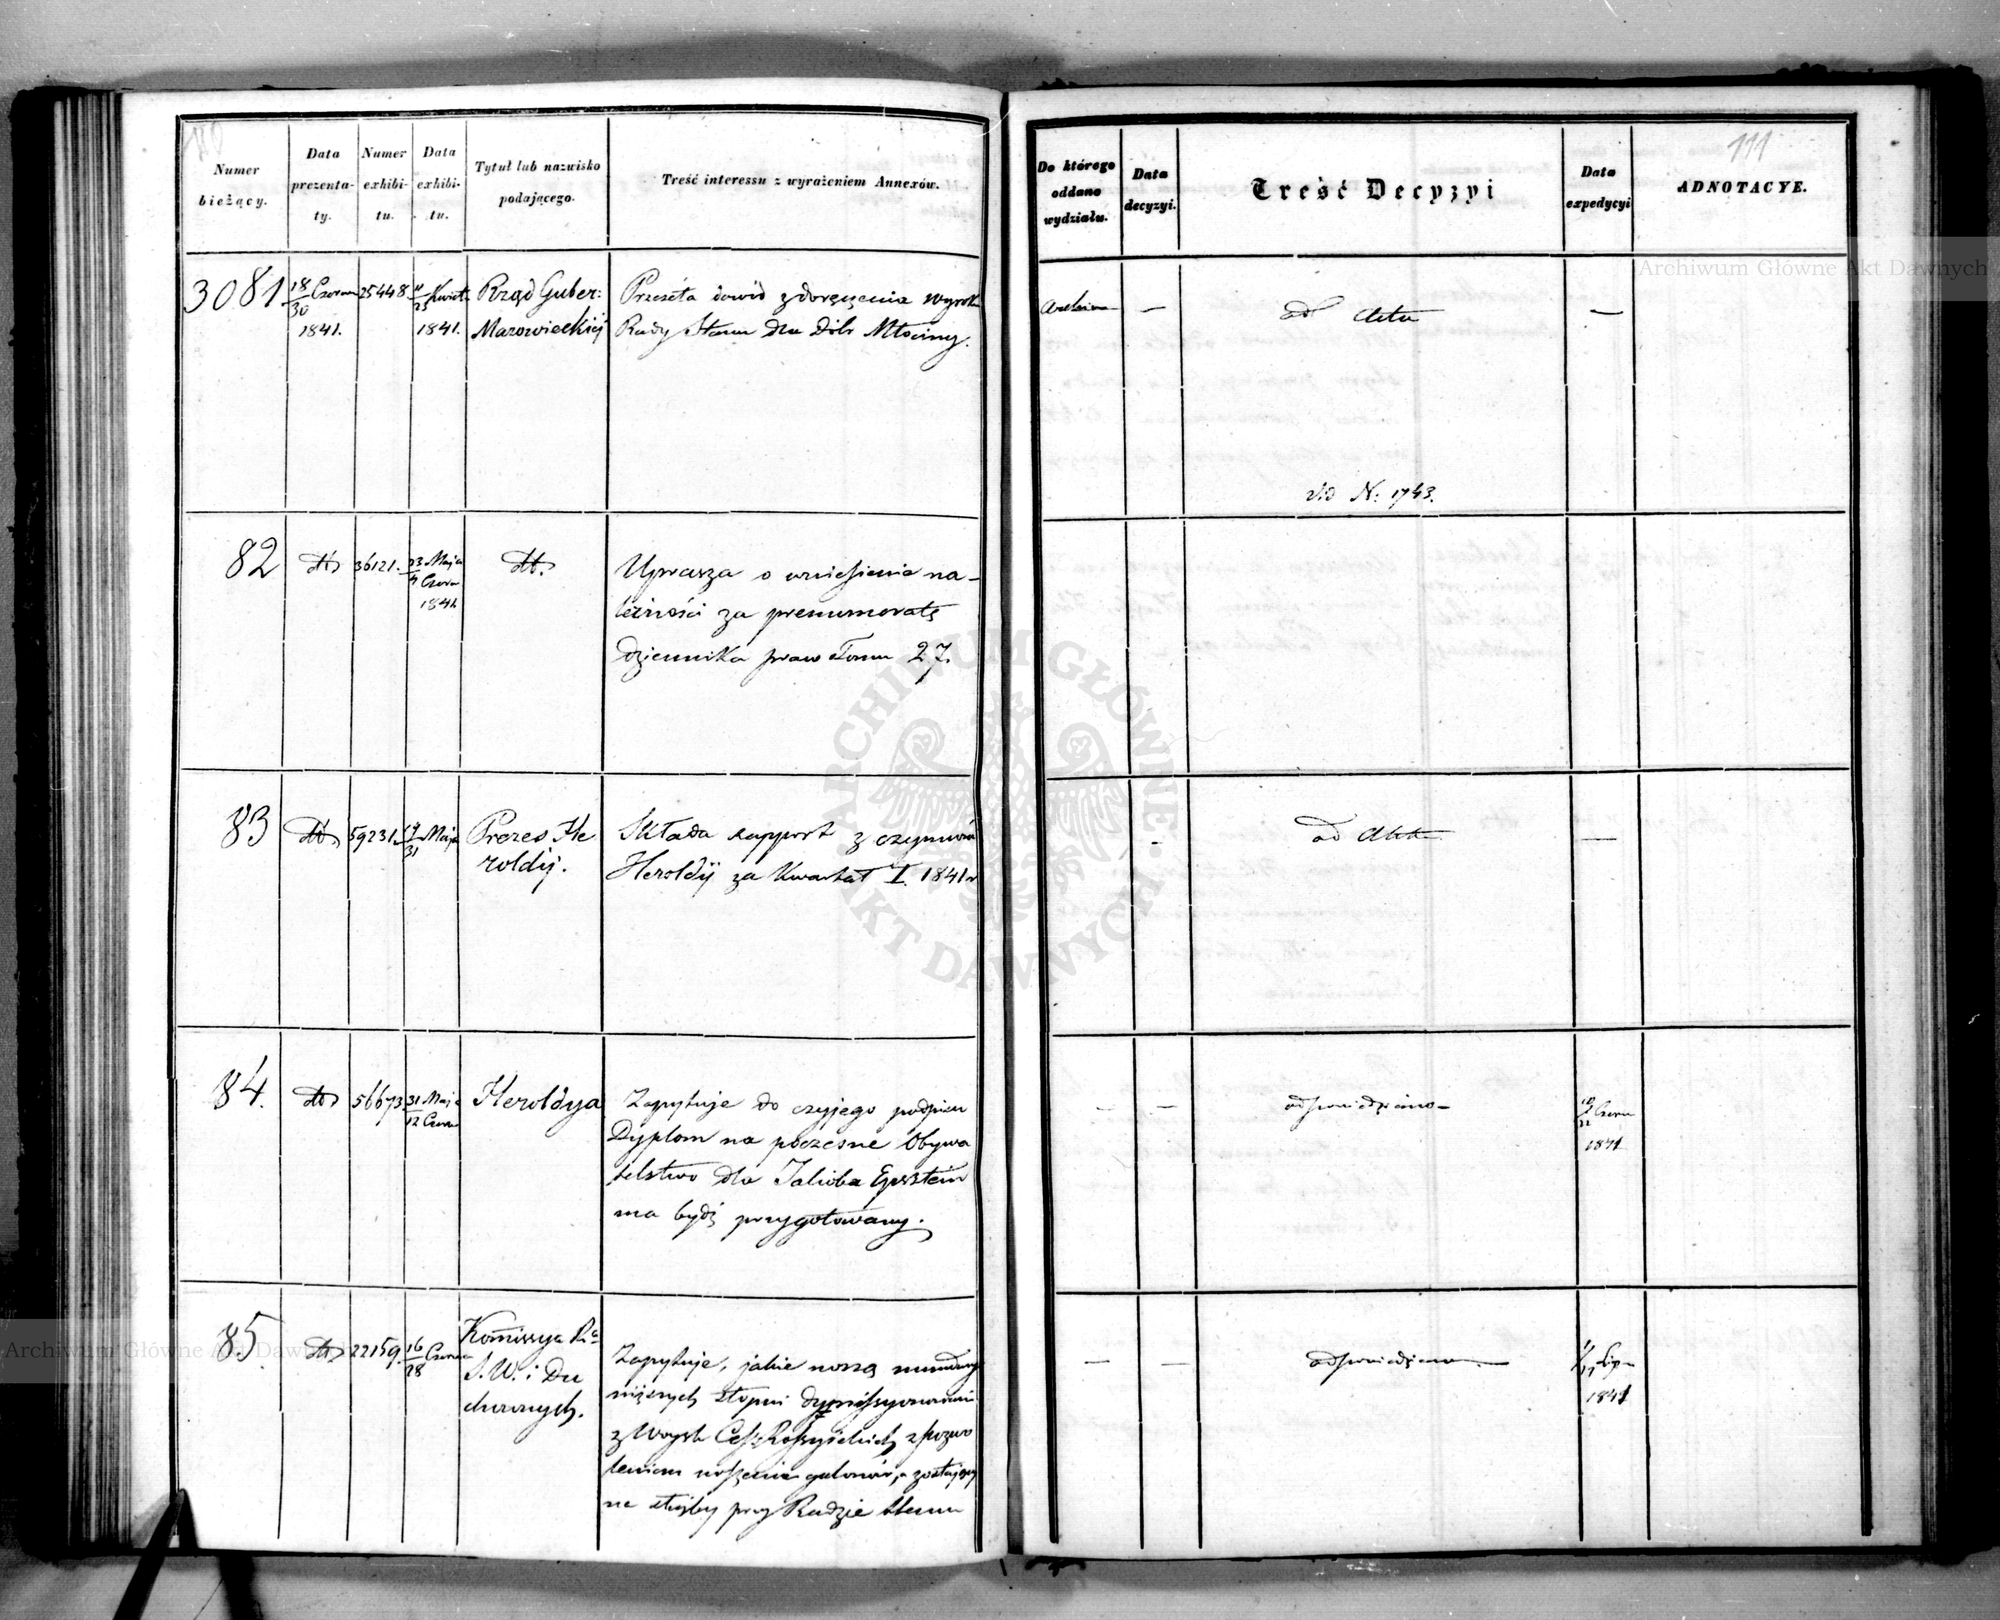 110
Numer
bieżący.
Data
prezenta-
ty.
Numer
exhibi-
tu.
Data
exhibi-
tu.
Tytuł lub nazwisko
podającego.
Treść interessu z wyrażeniem Annexów.
3081
18/30 Czerwca
1841.
25448
11/23 Kwiet.
1841.
Rząd Guber:
Mazowieckiej
Przeséła dowód z doręczenia wyroku
Rady Stanu dla Dóbr Młociny.
82
dto
36121.
23 Maja
4 Czerw
1841
dto.
Uprasza o wniesienie na-
leżności za prenumeratę
dziennika praw Tomu 27.
83
dto
59231.
Maja
31
Prezes He
roldij.
Składa rapport z czynności
Heroldij za Kwartał I. 1841 r
84.
dto
56673
31 Maja
12 Czerw
Heroldya
Zapytuje do czyjego podpisu
Dyplom na poczesne Obywa
telstwo dla Jakóba Epstein
ma bydź przygotowany.
85.
dto
22159.
16/28 Czerwca
Kommissya R.
S. W. i Du
chownych.
Zapytuje, jakie noszą mundury
niższych stopni dymissyonowani
z Woysk Ces: Rossyiskich z pozwo
leniem noszenia galonów, a zostający
na służby przy Radzie Stanu
111
Do którego
oddano
wydziału.
Data
decyzyi.
Treść Decyzyi
Data
expedycyi
ADNOTACYE.
Archiwum — ad Acta —
vid N: 1743.
ad Acta —
— — odpowiedziano — 10/22 Czerw
1841
— — odpowiedziano — Lipca
1841
Archiwum Główne Akt Dawnych
ARCHIWUM GŁÓWNE AKT DAWNYCH
Archiwum Główne Akt Dawnych